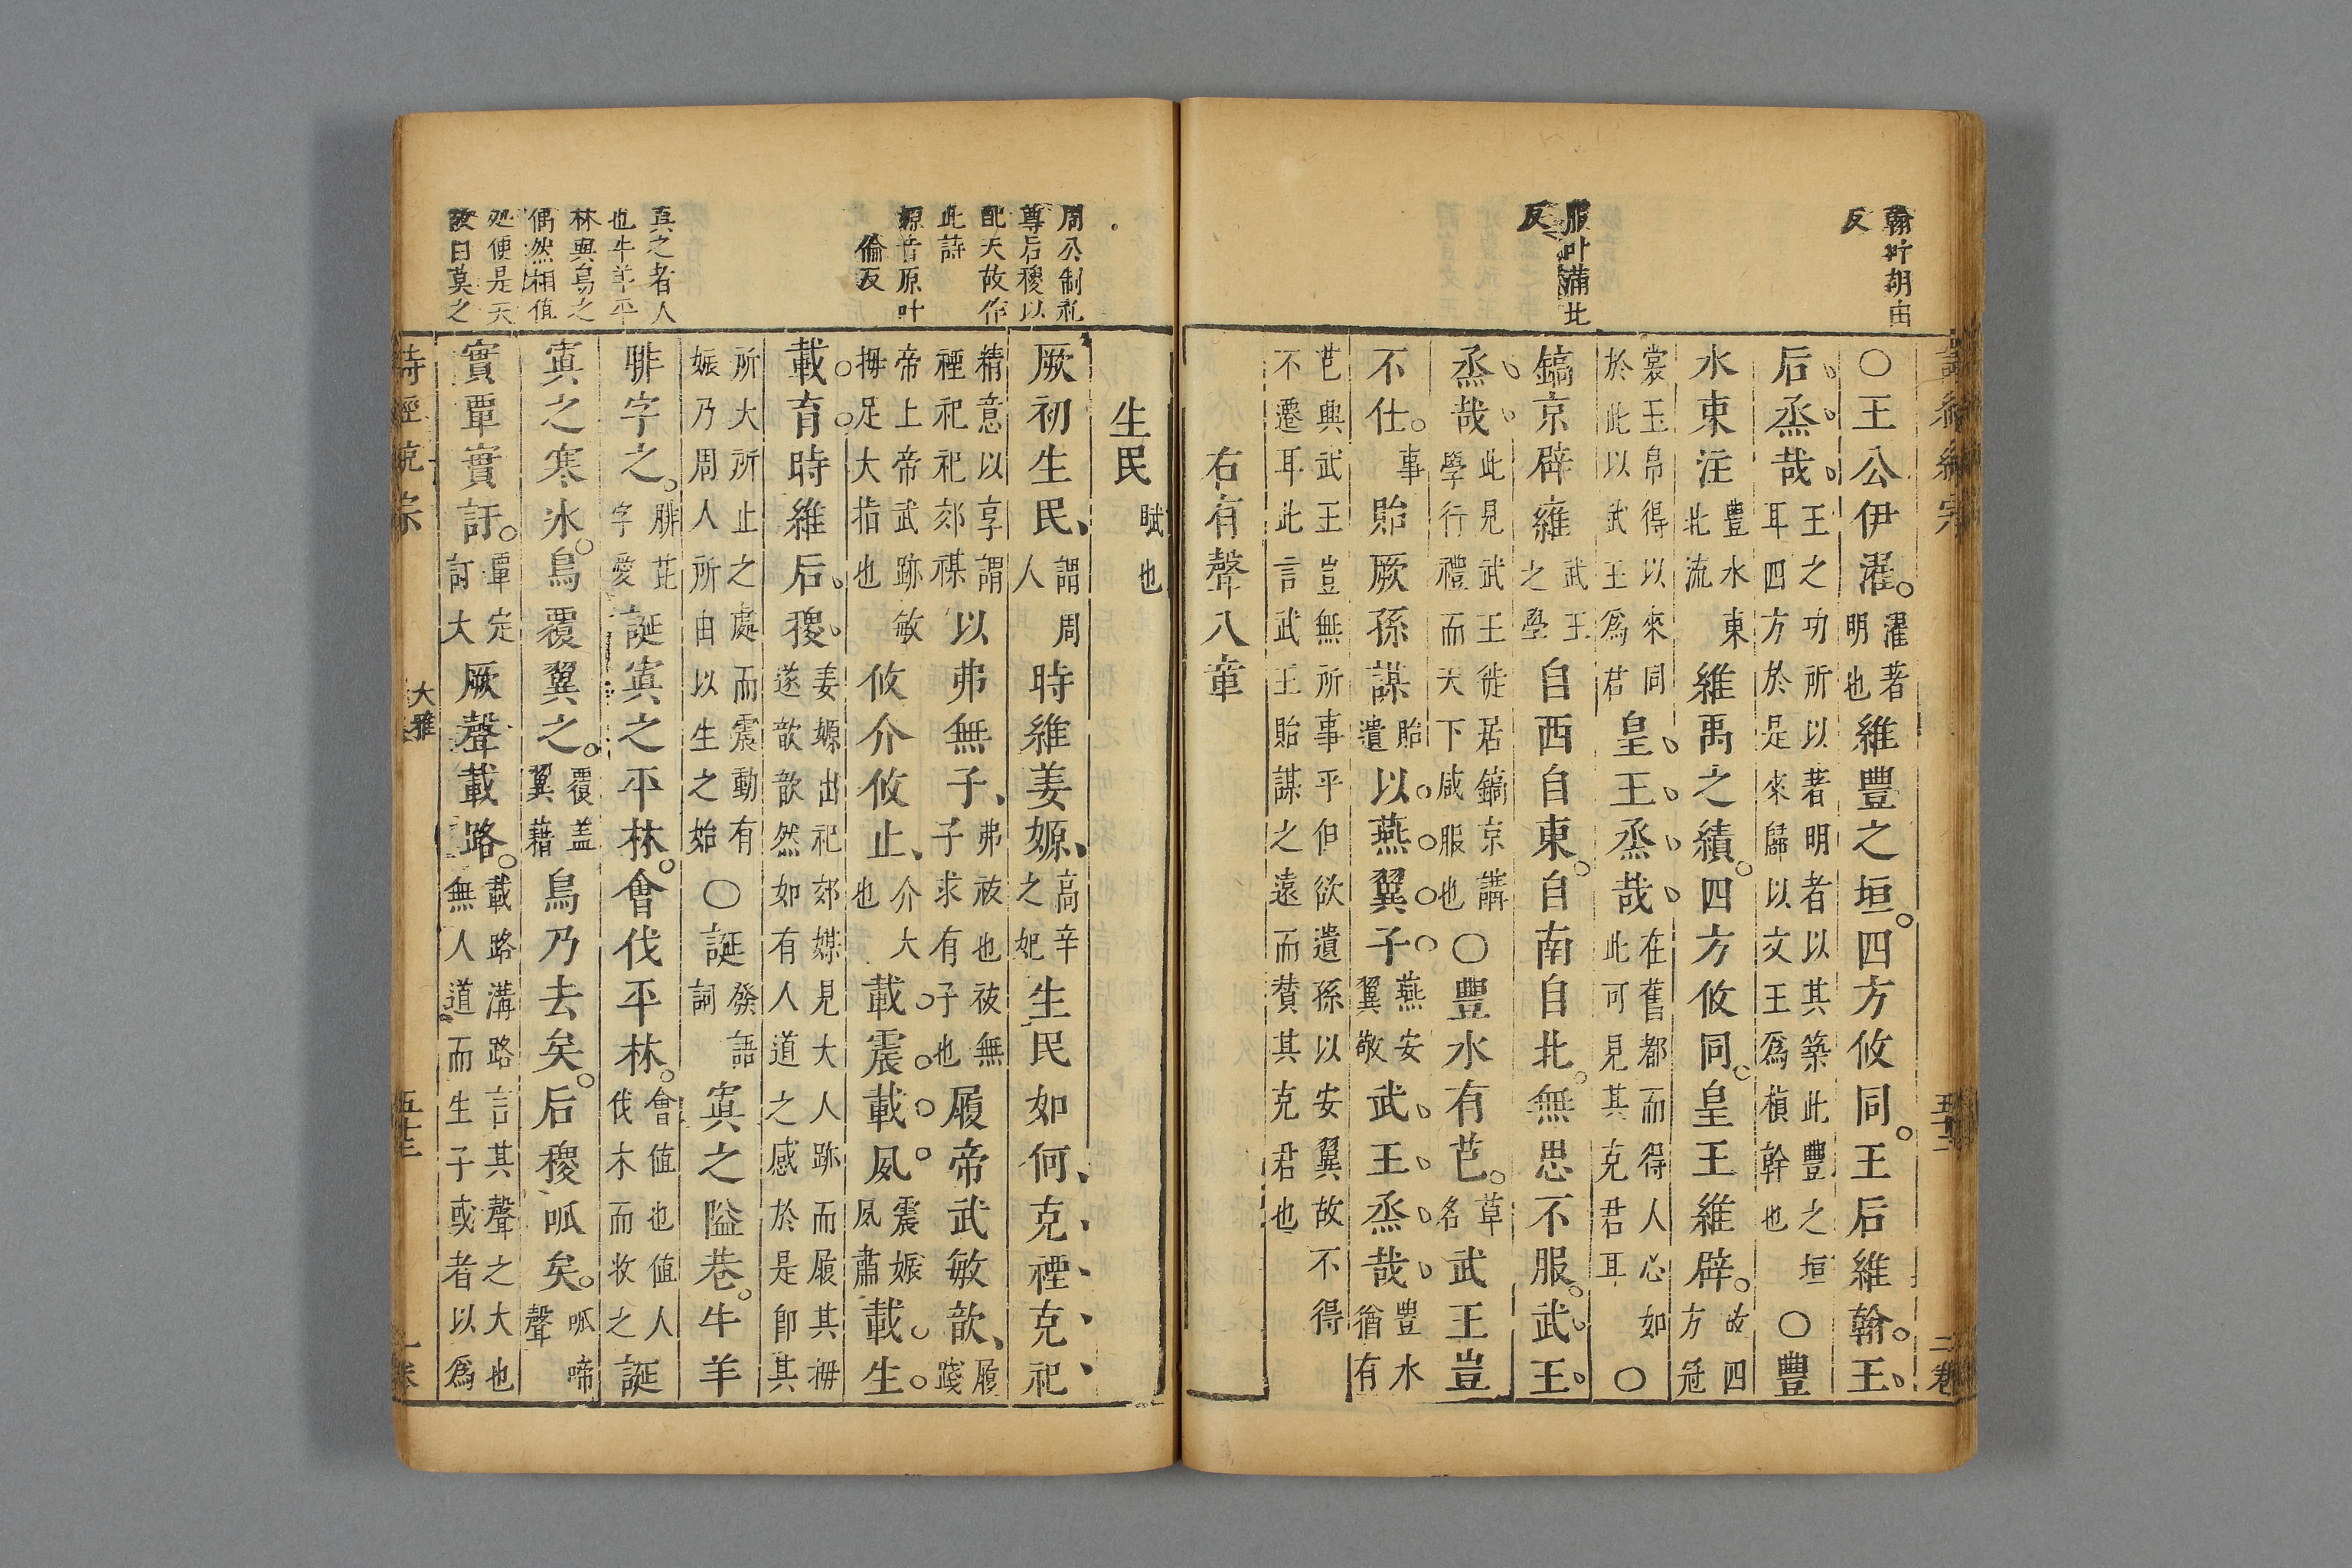 翰叶胡田
反
服叶蒲北
反
○王公伊濯濯著明也維豐之垣四方攸同王后維翰王
后烝哉王之功所以著明者以其築此豐之垣耳四方於是來歸以文王爲楨幹也○豐
水東注豐水東北流維禹之績四方攸同皇王維辟故四方冠
裳玉帛得以來同於此以武王爲君皇王烝哉在舊都而得人心如此可見其克君耳○
鎬京辟廱武王之學自西自東自南自北無思不服武王
烝哉此見武王徙居鎬京講學行禮而天下咸服也○豐水有芑草名武王豈
不仕事貽厥孫謀貽遺以燕翼子燕安翼敬武王烝哉豐水猶有
芑與武王豈無所事乎但欲遺孫以安翼故不得不遷耳此言武王貽謀之遠而贊其克君也
右有聲八章
詩經統宗
五十二
二卷
周公制礼
尊后稷以
配天故作
此詩
嫄音原叶
倫反
寘之者人
也牛羊平
林與鳥之
偶然相值
处便是天
故曰莫之
生民賦也
厥初生民人謂周時維姜嫄高辛之妃生民如何克禋克祀
精意以享謂禋祀祀郊禖以弗無子弗祓也祓無子求有子也履帝武敏歆履踐
帝上帝武跡敏拇足大指也攸介攸止介大也載震載夙震娠夙肅載生
載育時維后稷姜嫄出祀郊媒見大人跡而履其拇遂歆歆然如有人道之感於是即其
所大所止之處而震動有娠乃周人所由以生之始○誕發語詞寘之隘巷牛羊
腓字之腓芘字愛誕寘之平林會伐平林會值也值人伐木而收之誕
寘之寒冰鳥覆翼之覆盖翼藉鳥乃去矣后稷呱矣呱啼聲
實覃實訏覃定訏大厥聲載路載路溝路言其聲之大也無人道而生子或者以爲
詩經統宗
大雅
五十三
一卷